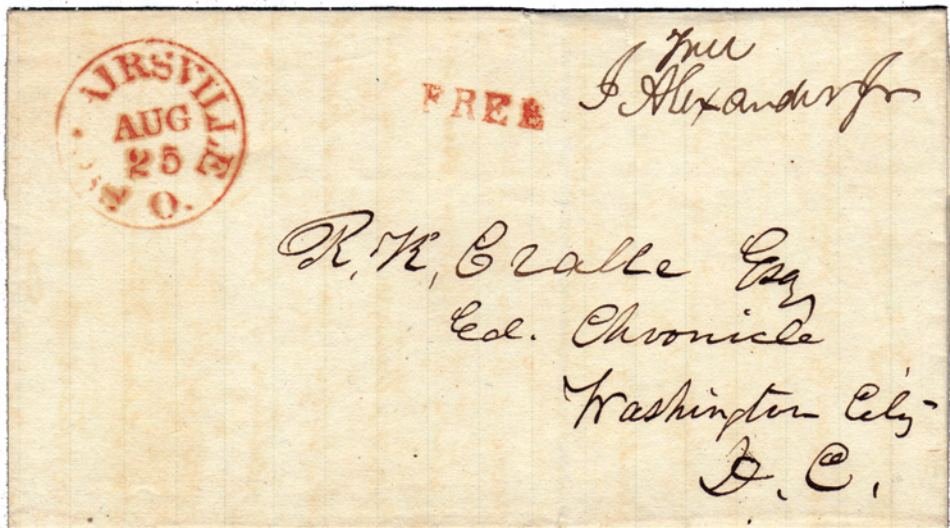 AIRSVILLE
AUG
25
O.
FREE
Free
J Alexander Jr
R. K. Cralle Esq
Ed. Chronicle
Washington City
D. C.